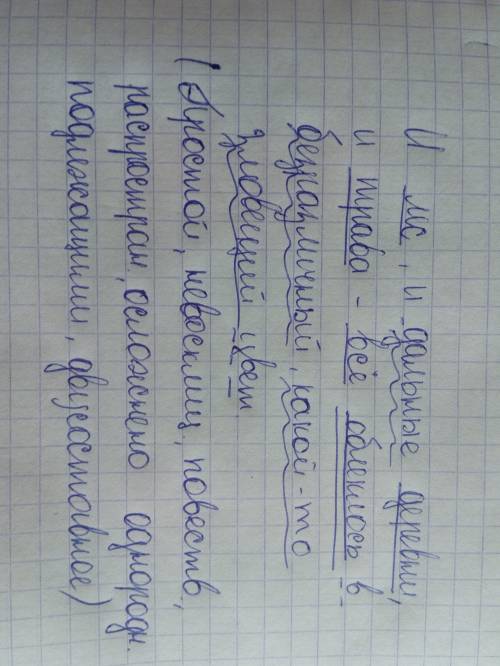 И лес, и дальные деревни,
и трава - всё облеклось в
безразличный, какой-то
зловещий цвет.
(Простой, невосклиц, повеств,
распростран, осложнено однородн.
подлежащими, двусоставное)